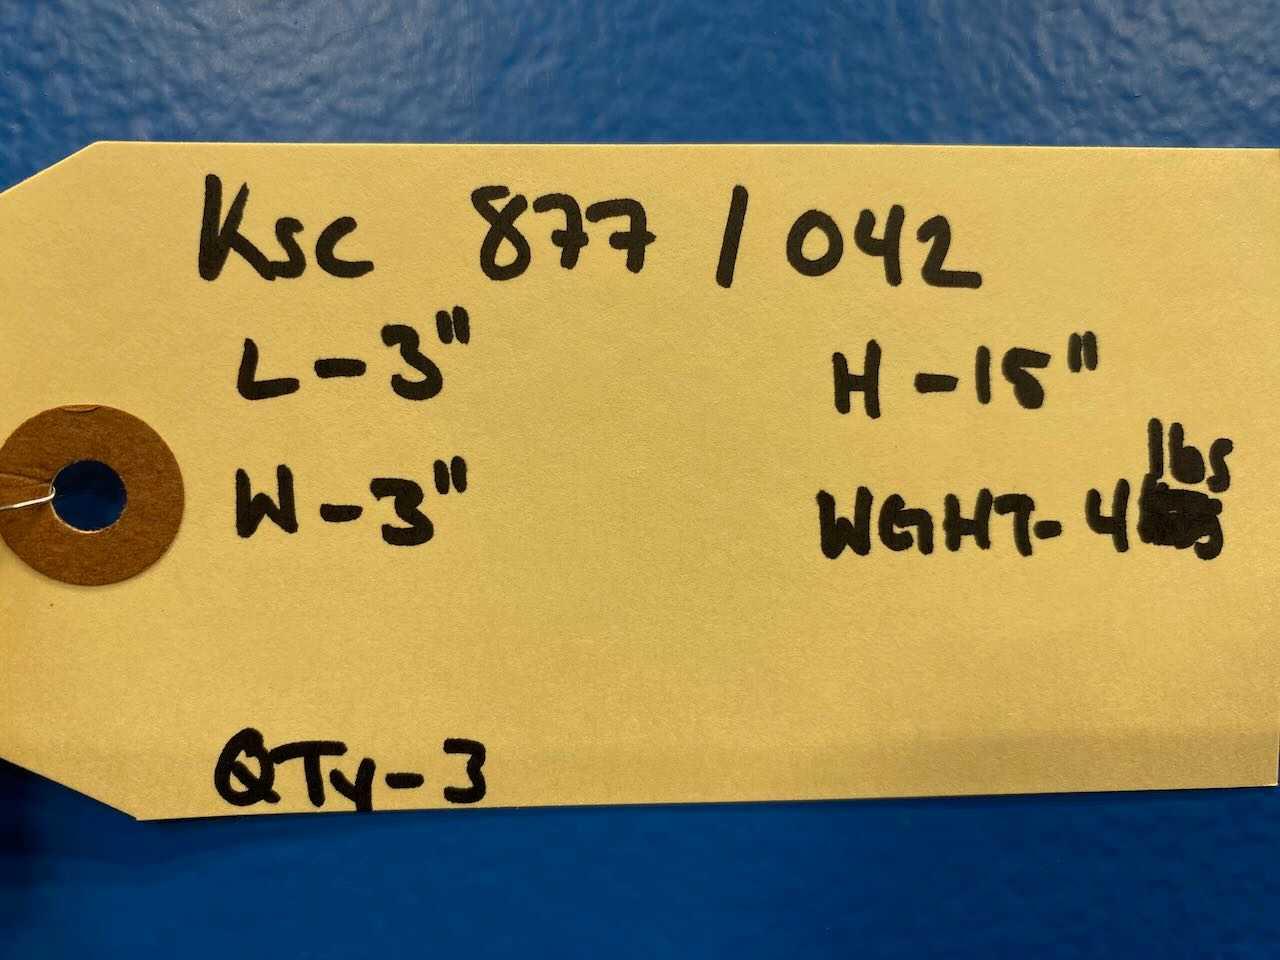 Ksc 877 / 042
L-3" H-15"
W-3" WGHT-4 lbs
QTy-3